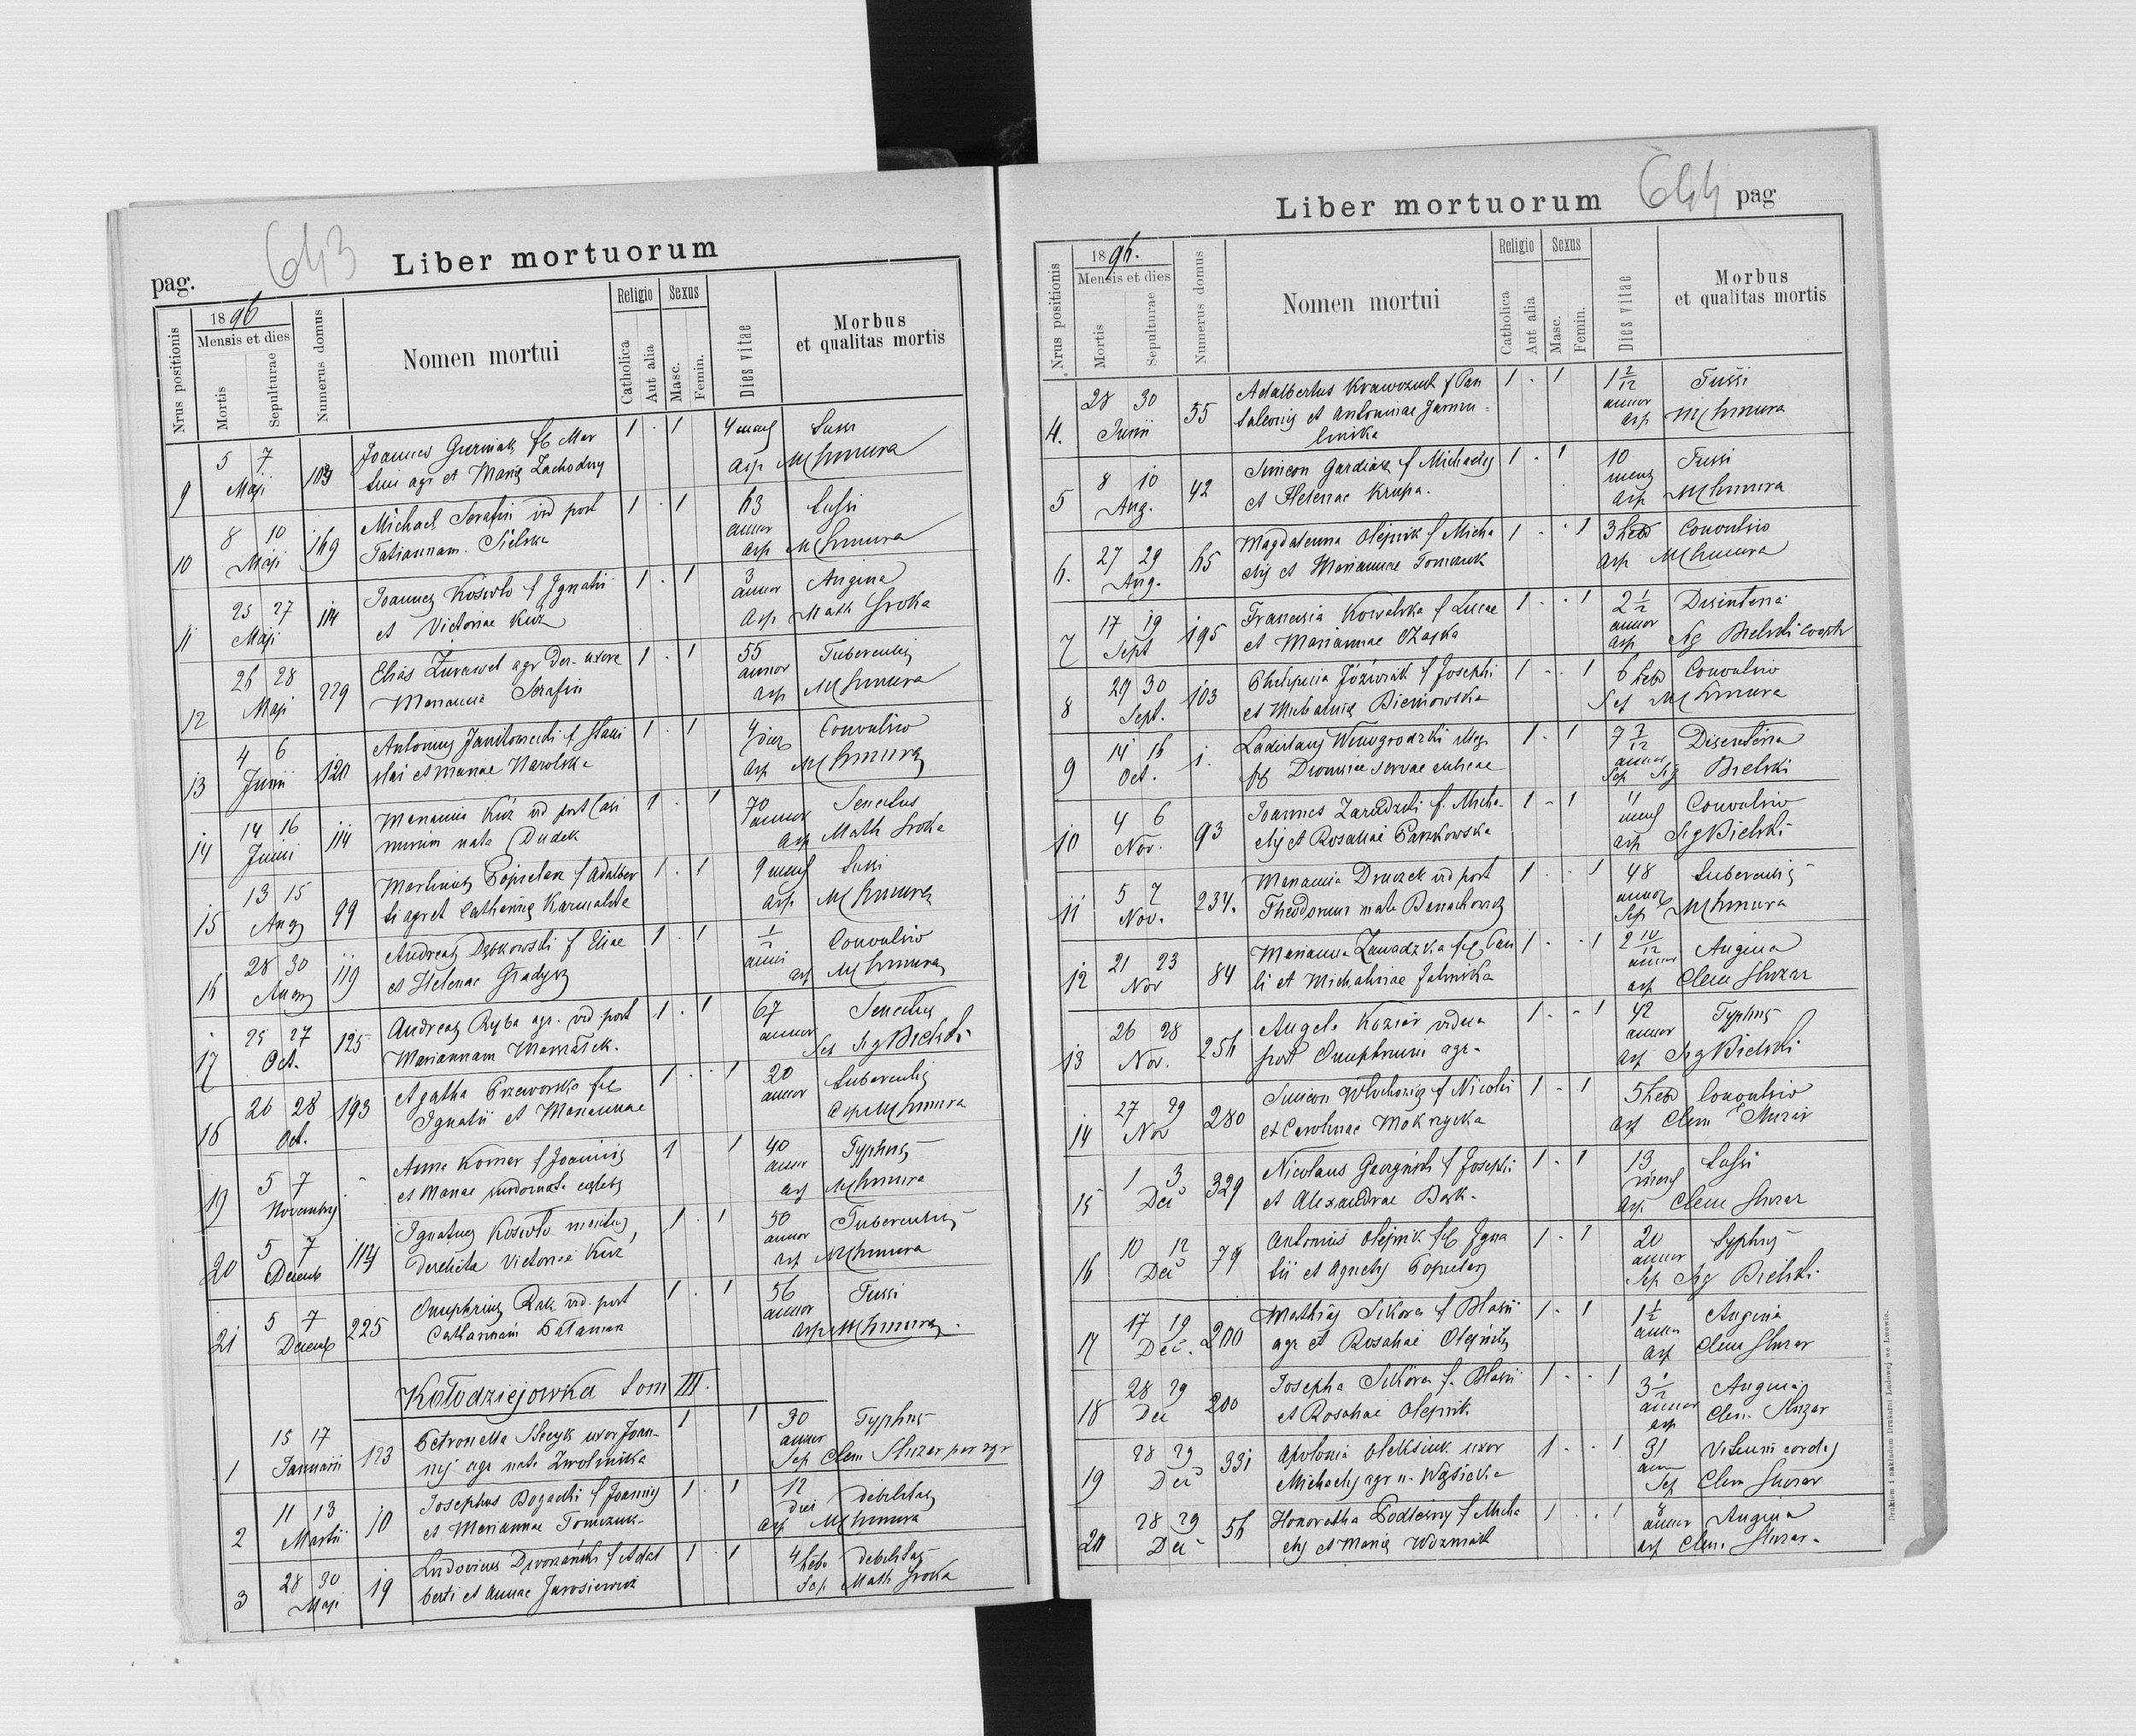 643
pag.
Liber mortuorum
Nrus positionis
1896
Mensis et dies
Mortis
Sepulturae
Numerus domus
Nomen mortui
Religio
Catholica
Aut alia
Sexus
Masc.
Femin.
Dies vitae
Morbus
et qualitas mortis
9 5 7 Maji 103
Joannes
1 . 1
4 Tussi
asp MChmura
10 8 10 Maji 169
Michael Serafin vid post
Tatiannam Sielska
1 . 1
63 annor Tussi
asp MChmura
11 25 27 Maji 114
Joannes Kosiorło f Ignatii
et Victoriae Kuź
1 . 1
3 annor Angina
asp Math Sroka
12 26 28 Maji 229
Elias Żurawel agr Der. uxore
Marianna Serafin
1 . 1
55 annor Tuberculis
asp MChmura
13 4 6 Junii 120
Antonius f Stani
slai et Mariae Narolska
1 . 1
4 dies Convulsio
asp MChmura
14 14 16 Junii 114
Marianna Kuź vid post Casi
mirum nata Dudek
1 . 1
70 annor Senectus
asp Math Sroka
15 13 15 Aug 99
Martinus Popielarz f Adalber
ti agr et Catherinae
1 . 1
9 mens Tussi
asp MChmura
16 28 30 119
Andreas Dębkowski f Eliae
et Helenae Gradysz
1 . 1
1/2 anni Convulsio
asp MChmura
17 25 27 Oct. 125
Andreas Ryba agr. vid post
Mariannam
1 . 1
67 annor Senectus
Sep Sig Bielski
18 26 28 Oct. 193
Agatha Przeworska fil
Ignatii et Mariannae
1 . . 1
20 annor Tuberculis
asp MChmura
19 5 7 Novembris
Anna Korner f Joannis
et Mariae
1 1
40 annor Typhus
asp MChmura
20 5 7 Decemb 114
Ignatius Kosiorło maritus
derelicta Victoriae Kuź
1 . 1
50 annor Tuberculis
asp MChmura
21 5 7 Decemb 225
Onuphrius Rak vid. post
Catharinam Bałaman
1 . 1
56 annor Tussi
asp MChmura.
Kołodziejowka tom III.
1 15 17 Januarii 123
Petronella uxor Joan-
nis agr nata Zwolinska
1 1
30 annor Typhus
Sep Clem Sluzar par zgr
2 11 13 Martii 10
Josephus Bogacki f Joannis
et Mariannae Tomczuk
1 . 1
12 dies debilitas
asp MChmura
3 28 30 Maji 19
Ludovicus Dworzański f Adal
berti et Annae Jarosiewicz
1 . 1
4 hebd debilitas
Sep Math Sroka
Liber mortuorum
644
pag
Nrus positionis
1896.
Mensis et dies
Mortis
Sepulturae
Numerus domus
Nomen mortui
Religio
Catholica
Aut alia
Sexus
Masc.
Femin.
Dies vitae
Morbus
et qualitas mortis
4. 28 30 Junii 55
Adalbertus Krawczuk f Pan
taleonis et Antoniae
1 . 1
1 2/12 annor Tussi
asp MChmura
5 8 10 Aug. 42
Simeon Gardiasz f Michaelis
et Helenae Krupa.
1 . 1
10 mens Tussi
asp MChmura
6. 27 29 Aug. 65
Magdalenna Olejnik f Micha
elis et Mariannae Tomczuk
1 . . 1
3 hebd Convulsio
asp MChmura
7 17 19 Sept 195
Francisia Kowalska f Lucae
et Mariannae Czajka
1 . . 1
2 1/2 annor Disinteria
asp Sig Bielski coop
8 29 30 Sept. 103
Józwiak f Josephi
et Michalinae Bieniowska
1 . . 1
6 hebd Convulsio
Sep MChmura
9 14 16 Oct. 1.
Ladislaus Winogrodzki illeg
fil Dionisiae servae aulicae
1 . 1
7 7/12 annor Disenteria
Sep Sig Bielski
10 4 6 Nov. 93
Joannes Zarudzki f. Micha-
elis et Rosaliae Parzkowska
1 . 1
11 mens Convulsio
asp Sig Bielski
11 5 7 Nov. 234.
Marianna Druczek vid post
Theodorum nata Banachowicz
1 . . 1
48 annor Tuberculis
Sep MChmura
12 21 23 Nov 84
Marianna Zawadzka fil Pau
li et Michalinae Jalinska
1 . . 1
2 10/12 annor Angina
asp Clem Sluzar
13 26 28 Nov. 256
Angela Kozior vidua
post Onuphrium agr.
1 . . 1
42 annor Typhus
asp Sig Bielski
14 27 29 Nov 280
Simeon f Nicolai
et Carolinae Mokrzycka
1 . 1
5 hebd Convulsio
asp Clem Sluzar
15 1 3 Dec 329
Nicolaus f Josephi
et Alexandrae Bąk.
1 . 1
13 mens Tussi
asp. Clem Sluzar
16 10 12 Dec 79
Antonius Olejnik fil Igna
tii et Agnetis Popielarz
1 . 1
20 annor Typhus
Sep Sig Bielski
17 17 19 Dec. 200
Mathias Sikora f Blasii
agr et Rosaliae Olejnik
1 . 1
1 1/2 annor Angina
asp Clem Sluzar
18 28 29 Dec 200
Josepha Sikora f. Blasii
et Rosaliae Olejnik
1 . . 1
3 1/2 annor Angina
asp Clem Sluzar
19 28 29 Dec 331
Apolonia Oleksiuk uxor
Michaelis agr n.
1 . . 1
31 ann Vitium cordis
Sep Clem Sluzar
20 28 29 Dec 56
Honoratha Podlesny f Micha
elis et Mariae Wozniak
1 . . 1
annor Angina
asp Clem. Sluzar.
Drukiem i nakładem Drukarni Ludowej we Lwowie.